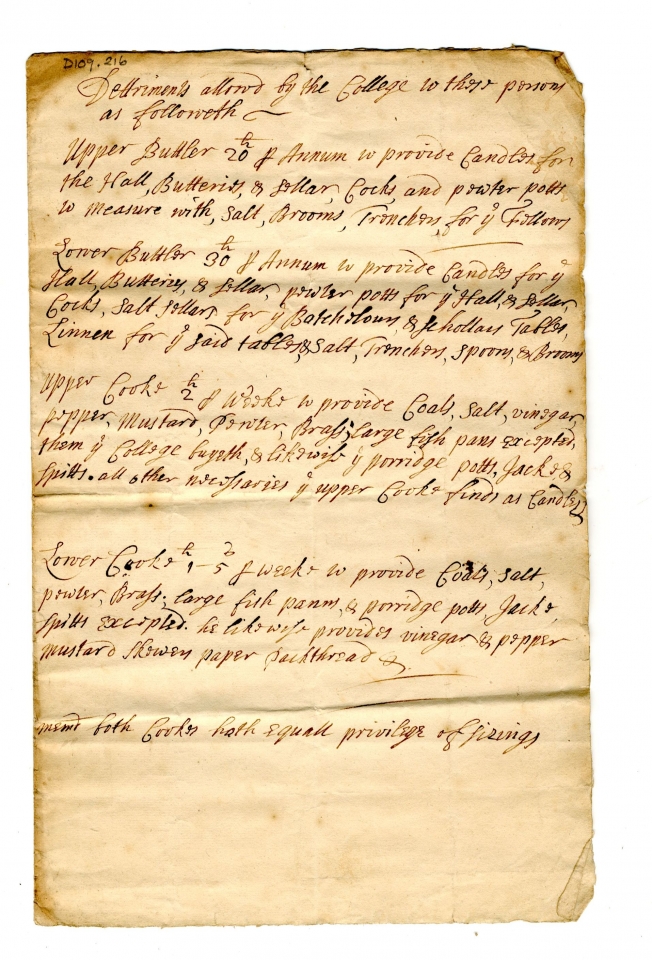 D109.216
Dettriments allowd by the College to these persons
as followeth
Upper Buttler 20 li ꝑ Annum to provide Candles for
the Hall, Butteries, & sellar, Cocks, and pewter potts
to measure with, salt, Brooms, Trenchers, for yᵉ Fellows
Lower Buttler 30 li ꝑ Annum to provide Candles for yᵉ
Hall, Butteries, & sellar, pewter potts for yᵉ Hall, & sellar,
Cocks, salt sellars, for yᵉ Batchelours, & schollars Tables,
Linnen for yᵉ said tables, & salt, Trenchers, spoons, & Brooms
Upper Cooke 2 li ꝑ Weeke to provide Coals, salt, vinegar,
pepper, Mustard, pewter, Brass, large fish pans excepted,
them yᵉ College buyeth, & likewise yᵉ porridge potts, Jacke &
spitts. all other necessaries yᵉ upper Cooke finds as Candles
Lower Cooke 1 li - 5 ꝑ weeke to provide Coals, salt,
pewter, Brass; large fish panns, & porridge potts, Jacke,
spitts excepted. he likewise provides vinegar & pepper
mustard skewers paper packthread &.
memd both Cookes hath equall privilege of sizings